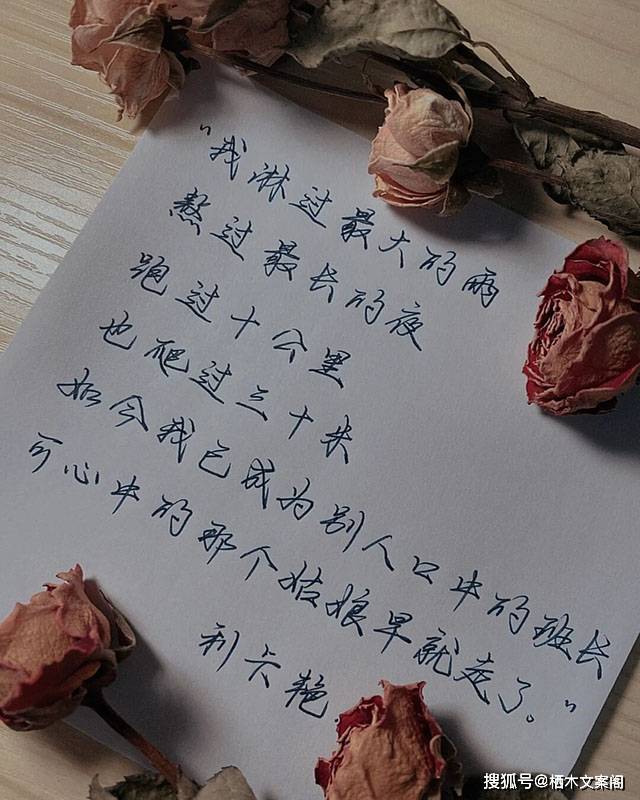 “我淋过最大的雨
熬过最长的夜
跑过十公里
也爬过三十米
如今我已成为别人口中的班长
可心中的那个姑娘早就走了。”
利云艳
搜狐号@栖木文案阁